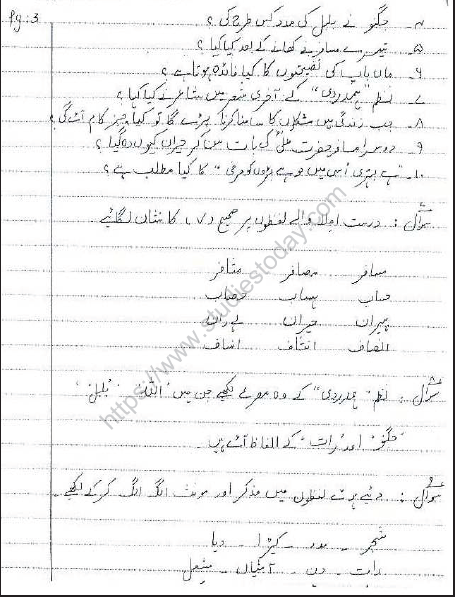 Pg:3
۴۔ جگنو نے بلبل کی مدد کس طرح کی؟
۵۔ تیسرے مسافر نے کھانے کے بعد کیا کیا؟
۶۔ ماں باپ کی نصیحتوں کا کیا فائدہ ہوتا ہے؟
۷۔ نظم "ہمدردی" کے آخری شعر میں شاعر نے کیا کہا؟
۸۔ جب زندگی میں مشکلوں کا سامنا کرنا پڑے گا تو کیا چیز کام آئے گی؟
۹۔ دوسرا مسافر حضرت علیؓ کی بات سن کر حیران کیوں رہ گیا؟
۱۰۔ ہے بہتری اسی میں جو ہے بڑوں کی مرضی" کا کیا مطلب ہے؟
سوال: درست املا والے لفظوں پر صحیح (✓) کا نشان لگائیے
مسافر مصافر مثافر
حساب ہساب حصاب
ہیران حیران
انصاف انثاف انساف
سوال: نظم "ہمدردی" کے وہ مصرعے لکھیے جن میں 'اللہ' 'بلبل'
'جگنو' اور 'رات' کے الفاظ آئے ہیں
سوال: دیئے ہوئے لفظوں میں مذکر اور مونث الگ الگ کر کے لکھیے۔
شجر ۔ مدد ۔ کیڑا ۔ دیا
رات ۔ دن ۔ آشیاں ۔ مشعل
https://www.studiestoday.com